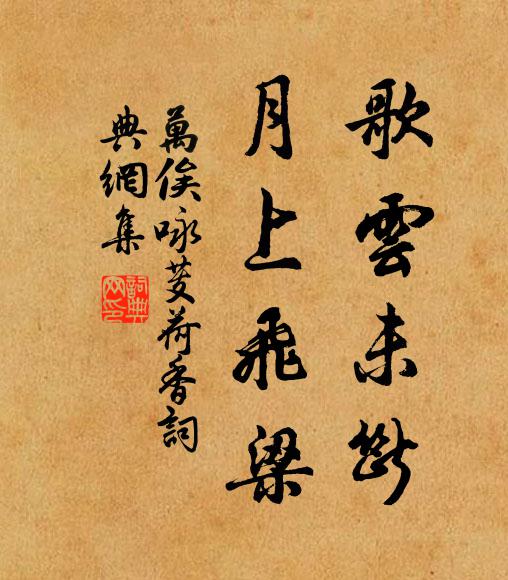 歌雲未斷
月上飛梁
萬俟咏芰荷香詞
典網集
詞典網印